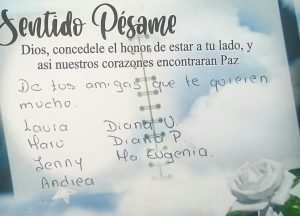 Sentido Pésame
Dios, concedele el honor de estar a tu lado, y
asi nuestros corazones encontraran Paz
De tus amigas que te quieren
mucho.
Laura Diana V.
Maro Diana P.
Jenny Ma Eugenia.
Andrea